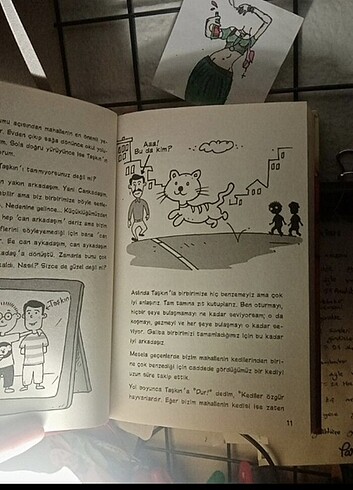 omu açısından mahallenin en önemli ye-
r. Evden çıkıp sağa dönünce okul yolu
m. Sola doğru yürüyünce ise Taşkın'ın
orum.
Taşkın'ı tanımıyorsunuz değil mi?
n yakın arkadaşım. Yani Cankadaşım.
bilir ama biz birbirimize böyle sesle-
. Nedenine gelince... Küçüklüğümüzden
hep "can arkadaşım" deriz ama bizim
flerini söyleyemediği için bana "can
e. E can aykadaşım, can aykadaşım
adaş"a dönüştü. Zamanla bunu çok
kaldı. Nasıl? Sizce de güzel değil mi?
Taşkın
Aaa!
Bu da kim?
Aslında Taşkın'la birbirimize hiç benzemeyiz ama çok
iyi anlaşırız. Tam tamına zıt kutuplarız. Ben oturmayı,
hiçbir şeye bulaşmamayı ne kadar seviyorsam; o da
koşmayı, gezmeyi ve her şeye bulaşmayı o kadar se-
viyor. Galiba birbirimizi tamamladığımız için bu kadar
iyi arkadaşız.
Mesela geçenlerde bizim mahallenin kedilerinden biri-
ne çok benzediği için caddede gördüğümüz bir kediyi
uzun süre takip ettik.
Yol boyunca Taşkın'a "Dur!" dedim, "Kediler özgür
hayvanlardır. Eğer bizim mahallenin kedisi ise zaten
11